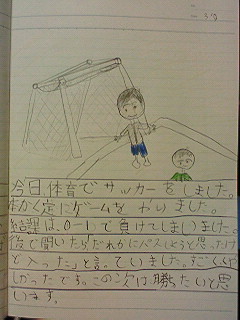 今日体育でサッカーをしました。
定にゲームをやりました。
結果は、0-1で負けてしまいました。
後で聞いたらだれかにパスしようと思ったけ
ど入った」と言っていました。すごくくや
しかったです。この次は勝ちたいと思
います。